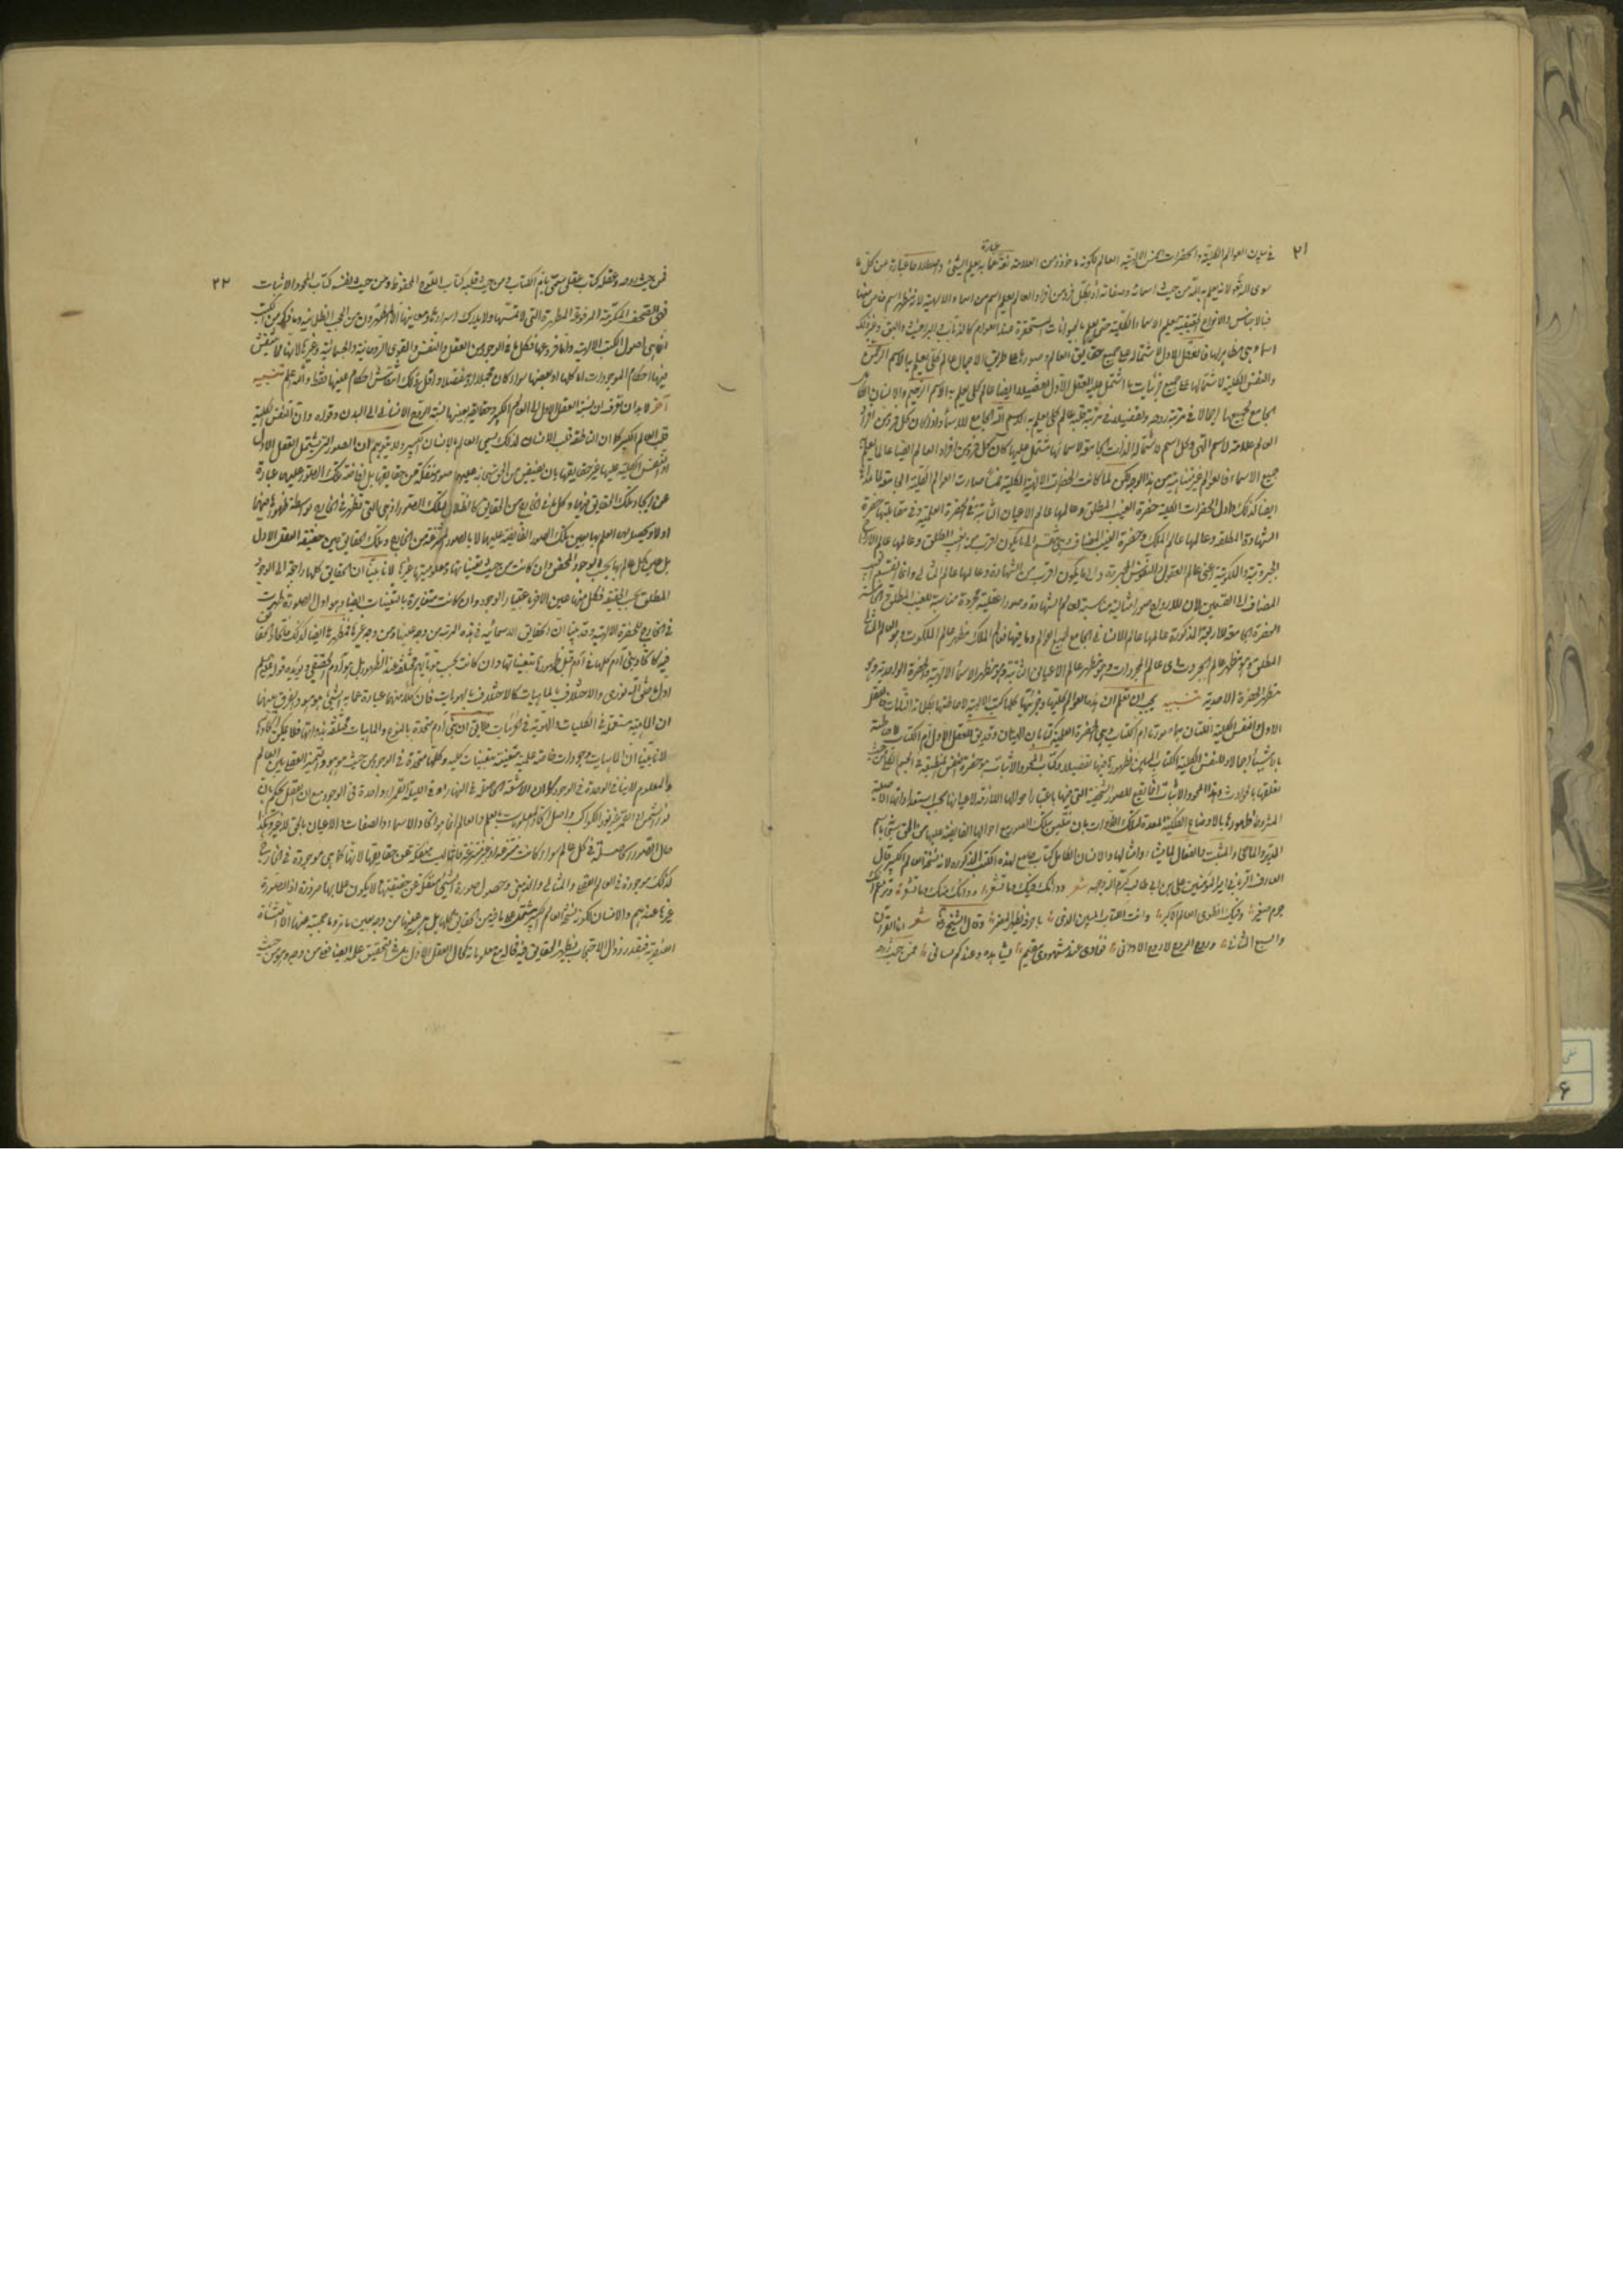 ٢١
في بيان العوالم الكلية والحضرات الخمس الالهية العالم لكونه مأخوذ من العلامة لغة عبارة عما به يعلم الشئ واصطلاحا عبارة عن كل ما
سوى الله لانه يعلم به الله من حيث اسمائه وصفاته اذ بكل فرد من افراد العالم يعلم اسم من اسماء الالهية لانه مظهر اسم خاص منها
فبالاجناس والانواع الحقيقية يعلم الاسماء الكلية حتى يعلم بالحيوانات المستحقرة عند العوام كالذباب والبراغيث والبق وغير ذلك
اسماء هي مظاهر لها فالعقل الاول لاشتماله على جميع حقايق العالم وصورها على طريق الاجمال عالم كلي يعلم به الاسم الرحمن
والنفس الكلية لاشتمالها على جميع جزئيات ما اشتمل عليه العقل الاول تفصيلا ايضا عالم كلي يعلم به الاسم الرحيم والانسان الكامل
الجامع لجميعها اجمالا في مرتبة روحه وتفصيلا في مرتبة قلبه عالم كلي يعلم به الاسم الله الجامع للاسماء واذا كان كل فرد من افراد
العالم علامة لاسم الهي وكل اسم لاشتماله الذات الجامعة لاسمائها مشتمل عليها كان كل فرد من افراد العالم ايضا عالما يعلم به
جميع الاسماء فالعوالم غير متناهية من هذا الوجه لكن لما كانت الحضرات الالهية الكلية خمسا صارت العوالم الكلية الجامعة لما عداها
ايضا كذلك واول الحضرات الكلية حضرة الغيب المطلق وعالمها عالم الاعيان الثابتة في الحضرة العلمية وفي مقابلتها حضرة
الشهادة المطلقة وعالمها عالم الملك وحضرة الغيب المضاف وهي تنقسم الى ما يكون اقرب من الغيب المطلق وعالمها عالم الارواح
الجبروتية والملكوتية اعني عالم العقول والنفوس المجردة والى ما يكون اقرب من الشهادة وعالمها عالم المثال وانما انقسم الغيب
المضاف الى القسمين لان للارواح صورا مثالية مناسبة لعالم الشهادة وصورا عقلية مجردة مناسبة للغيب المطلق والخامسة
الحضرة الجامعة للاربعة المذكورة وعالمها عالم الانسان الجامع لجميع العوالم وما فيها فعالم الملك مظهر عالم الملكوت وهو العالم المثالي
المطلق وهو مظهر عالم الجبروت اى عالم المجردات وهو مظهر عالم الاعيان الثابتة وهو مظهر الاسماء الالهية والحضرة الواحدية وهي
مظهر الحضرة الاحدية تنبيه يجب ان تعلم ان هذه العوالم كليها وجزئيها كلها كتب الالهية لاحاطتها بكلماته التامات فالعقل
الاول والنفس الكلية اللتان هما صورتا ام الكتاب وهي الحضرة العلمية كتابان الهيان وقد يق للعقل الاول ام الكتاب لاحاطته
بالاشياء اجمالا وللنفس الكلية الكتاب المبين لظهورها فيها تفصيلا وكتاب المحو والاثبات هو حضرة النفس المنطبعة في الجسم الكلي من حيث
تعلقها بالحوادث وهذا المحو والاثبات انما يقع للصور الشخصية التي فيها باعتبار احوالها اللازمة لاعيانها بحسب استعداداتها الاصلية
المشروط ظهورها بالاوضاع الفلكية المعدة لتلك الذوات بان تتلبس بتلك الصور مع احوالها الفايضة عليها من الحق سبحانه باسم
المدبر والماحي والمثبت والفعال لما يشاء وامثالها والانسان الكامل كتاب جامع لهذه الكتب المذكورة لانه نسخة العالم الكبير قال
العارف الرباني امير المؤمنين علي بن ابي طالب كرم الله وجهه شعر دوائك فيك وما تشعر وداؤك منك وما تبصر وتزعم انك
جرم صغير وفيك انطوى العالم الاكبر وانت الكتاب المبين الذي باحرفه يظهر المضمر وقال الشيخ رض شعر انا القرآن
والسبع المثاني وروح الروح لا روح الاواني فؤادي عند مشهودي مقيم يشاهده وعندكم لساني فمن حيث روحه
٢٢
فمن حيث روحه وعقله كتاب عقلي مسمى بام الكتاب ومن حيث قلبه كتاب اللوح المحفوظ ومن حيث نفسه كتاب المحو والاثبات
فهي الصحف المكرمة المرفوعة المطهرة التي لا يمسها ولا يدرك اسرارها ومعانيها الا المطهرون من الحجب الظلمانية وما ذكر من الكتب
انما هي اصول الكتب الالهية واما فروعها فكل ما في الوجود من العقل والنفس والقوى الروحانية والجسمانية وغيرها لانها مما ينتقش
فيها احكام الموجودات اما كلها او بعضها سواء كان مجملا او مفصلا واقل ذلك انتقاش احكام عينها فقط والله اعلم تنبيه
آخر لا بد ان تعرف ان نسبة العقل الاول الى العالم الكبير وحقايقه بعينها نسبة الروح الانساني الى البدن وقواه وان النفس الكلية
قلب العالم الكبير كما ان الناطقة قلب الانسان لذلك يسمى العالم بالانسان الكبير ولا يتوهم ان الصور التي يشتمل العقل الاول
او النفس الكلية عليها غير حقايقها بان يفيض من الحق سبحانه عليها صور منفكة عن حقايقها بل افاضة تلك الصور عليهما عبارة
عن ايجاد تلك الحقايق فيهما وكل ما في الخارج من الحقايق كالظلال لتلك الصور اذ هي التي تظهر في الخارج بواسطة ظهورها فيهما
اولا ويحصل لهما العلم بها بعين تلك الصور الفايضة عليهما لا بالصور المنتزعة من الخارج وتلك الحقايق عين حقيقة العقل الاول
بل عين كل عالم بها بحسب الوجود المحض وان كانت من حيث تعيناتها ومعلوميتها غيرها لانا بينا ان الحقايق كلها راجعة الى الوجود
المطلق بحسب الحقيقة فكل منها عين الاخر باعتبار الوجود وان كانت متغايرة بالتعينات ايضا وهو اول صورة ظهرت
في الخارج للحضرة الالهية وقد بينا ان الحقايق الاسمائية في هذه المرتبة من وجه عينها ومن وجه غيرها فمظهرها ايضا كذلك فاتحاد الحقايق
فيه كاتحاد بني آدم كلها في آدم قبل ظهورها بتعيناتها وان كانت بحسب هوياتهم مختلفة عند الظهور بل هو آدم الحقيقي ويؤيده قوله عم
اول ما خلق الله نوري والاختلاف بالماهيات كالاختلاف بالهويات فان كلا منهما عبارة عما به الشئ هو هو والفرق بينهما
ان الماهية مستعملة في الكليات والهوية في الجزئيات لا يق ان بني آدم متحدة بالنوع والماهيات مختلفة بذواتها فلا يمكن اتحادها
لانا بينا ان الماهيات وجودات خاصة علمية متعينة بتعينات كلية وكلها متحدة في الوجود من حيث هو هو والتميز العقلي بين العالم
والمعلوم لا ينافي الوحدة في الوجود كما ان الاشعة الحاصلة في النهار او في الليلة القمراء واحدة في الوجود مع ان العقل يحكم بان
نور الشمس او القمر غير نور الكواكب واصل اتحاد المعلومات بالعلم والعالم انما هو اتحاد الاسماء والصفات والاعيان بالحق لا غير وهكذا
حال الصور الحاصلة في كل عالم سواء كانت منتزعة او غير منتزعة فانها ليست منفكة عن حقايقها لانها كما هي موجودة في الخارج
كذلك موجودة في العالم العقلي والمثالي والذهني وحصول صورة الشئ منفكة عن حقيقتها لا يكون علما بها ضرورة اذ الصورة
غيرها عندهم والانسان لكونه نسخة العالم الكبير مشتمل على ما فيه من الحقايق كلها بل هي عينها من وجه بعين ما مر وما حجبه عنها الا النشأة
العنصرية فبقدر زوال الاحتجاب يظهر الحقايق فيه فحاله مع معلوماته كحال العقل الاول بل في التحقيق علمه ايضا فعلي من وجه وهو من حيث